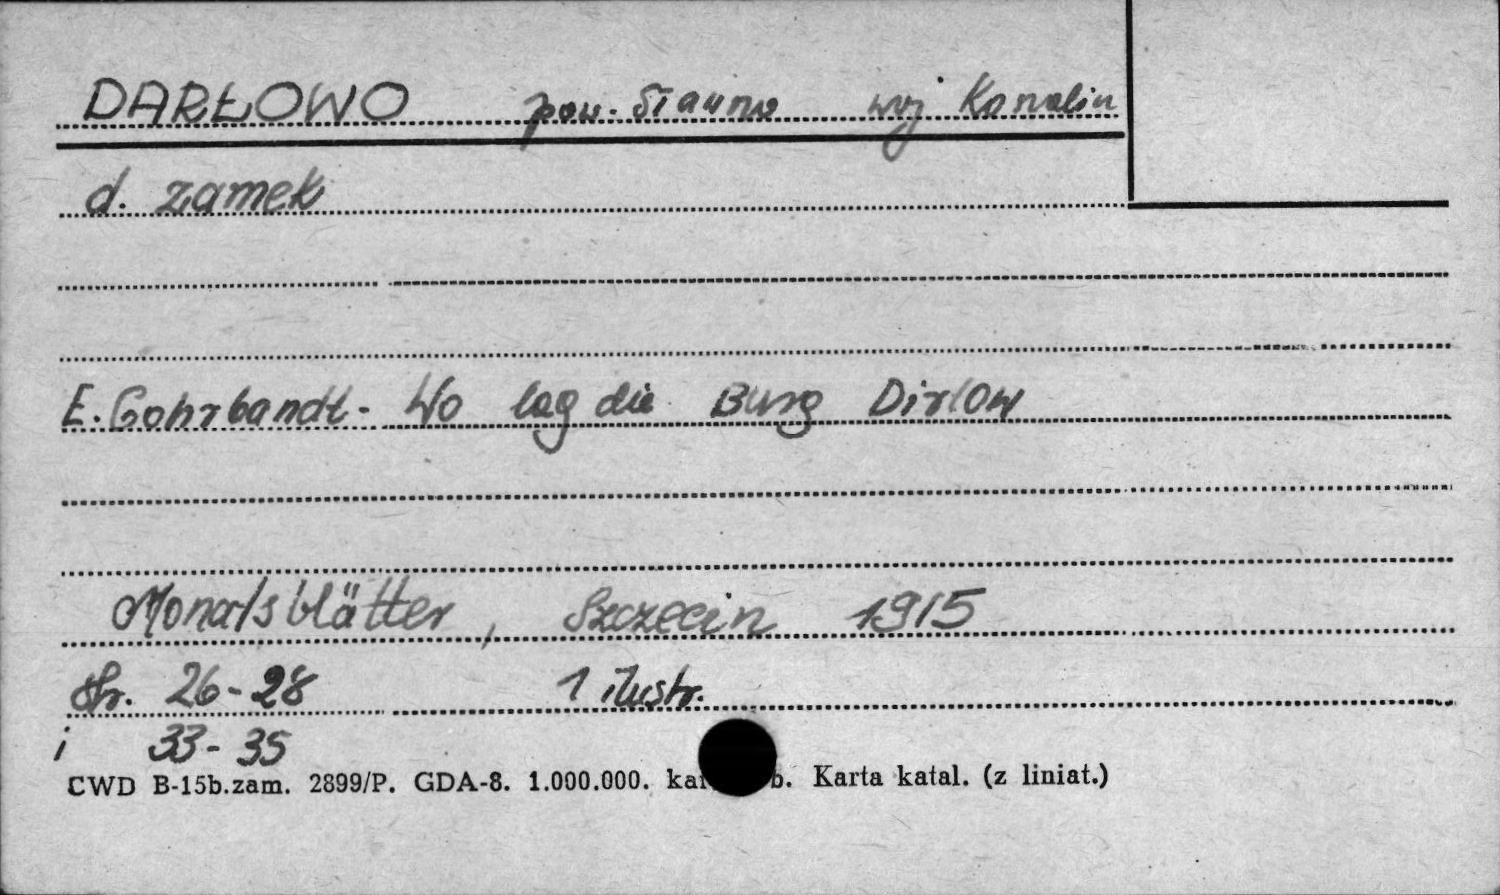 DARŁOWO pow. Sławno woj Koszalin
d. zamek
E. Gohrbandt - Wo lag die Burg Dirlow
Monatsblätter, Szczecin 1915
str. 26-28 1 ilustr.
i 33-35
CWD B-15b.zam. 2899/P. GDA-8. 1.000.000. b. Karta katal. (z liniat.)